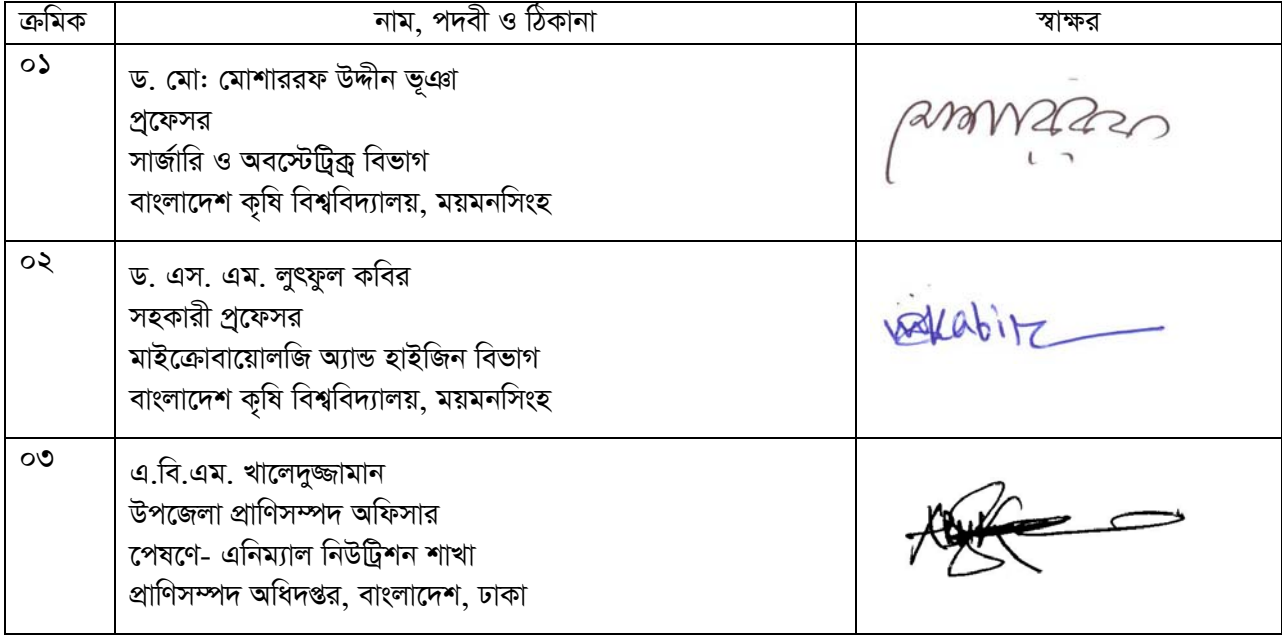 ক্রমিক নাম, পদবী ও ঠিকানা স্বাক্ষর
০১
ড. মো: মোশাররফ উদ্দীন ভূঞা
প্রফেসর
সার্জারি ও অবস্টেট্রিক্স বিভাগ
বাংলাদেশ কৃষি বিশ্ববিদ্যালয়, ময়মনসিংহ
মোশাররফ
০২
ড. এস. এম. লুৎফুল কবির
সহকারী প্রফেসর
মাইক্রোবায়োলজি অ্যান্ড হাইজিন বিভাগ
বাংলাদেশ কৃষি বিশ্ববিদ্যালয়, ময়মনসিংহ
Kabir
০৩
এ.বি.এম. খালেদুজ্জামান
উপজেলা প্রাণিসম্পদ অফিসার
পেষণে- এনিম্যাল নিউট্রিশন শাখা
প্রাণিসম্পদ অধিদপ্তর, বাংলাদেশ, ঢাকা